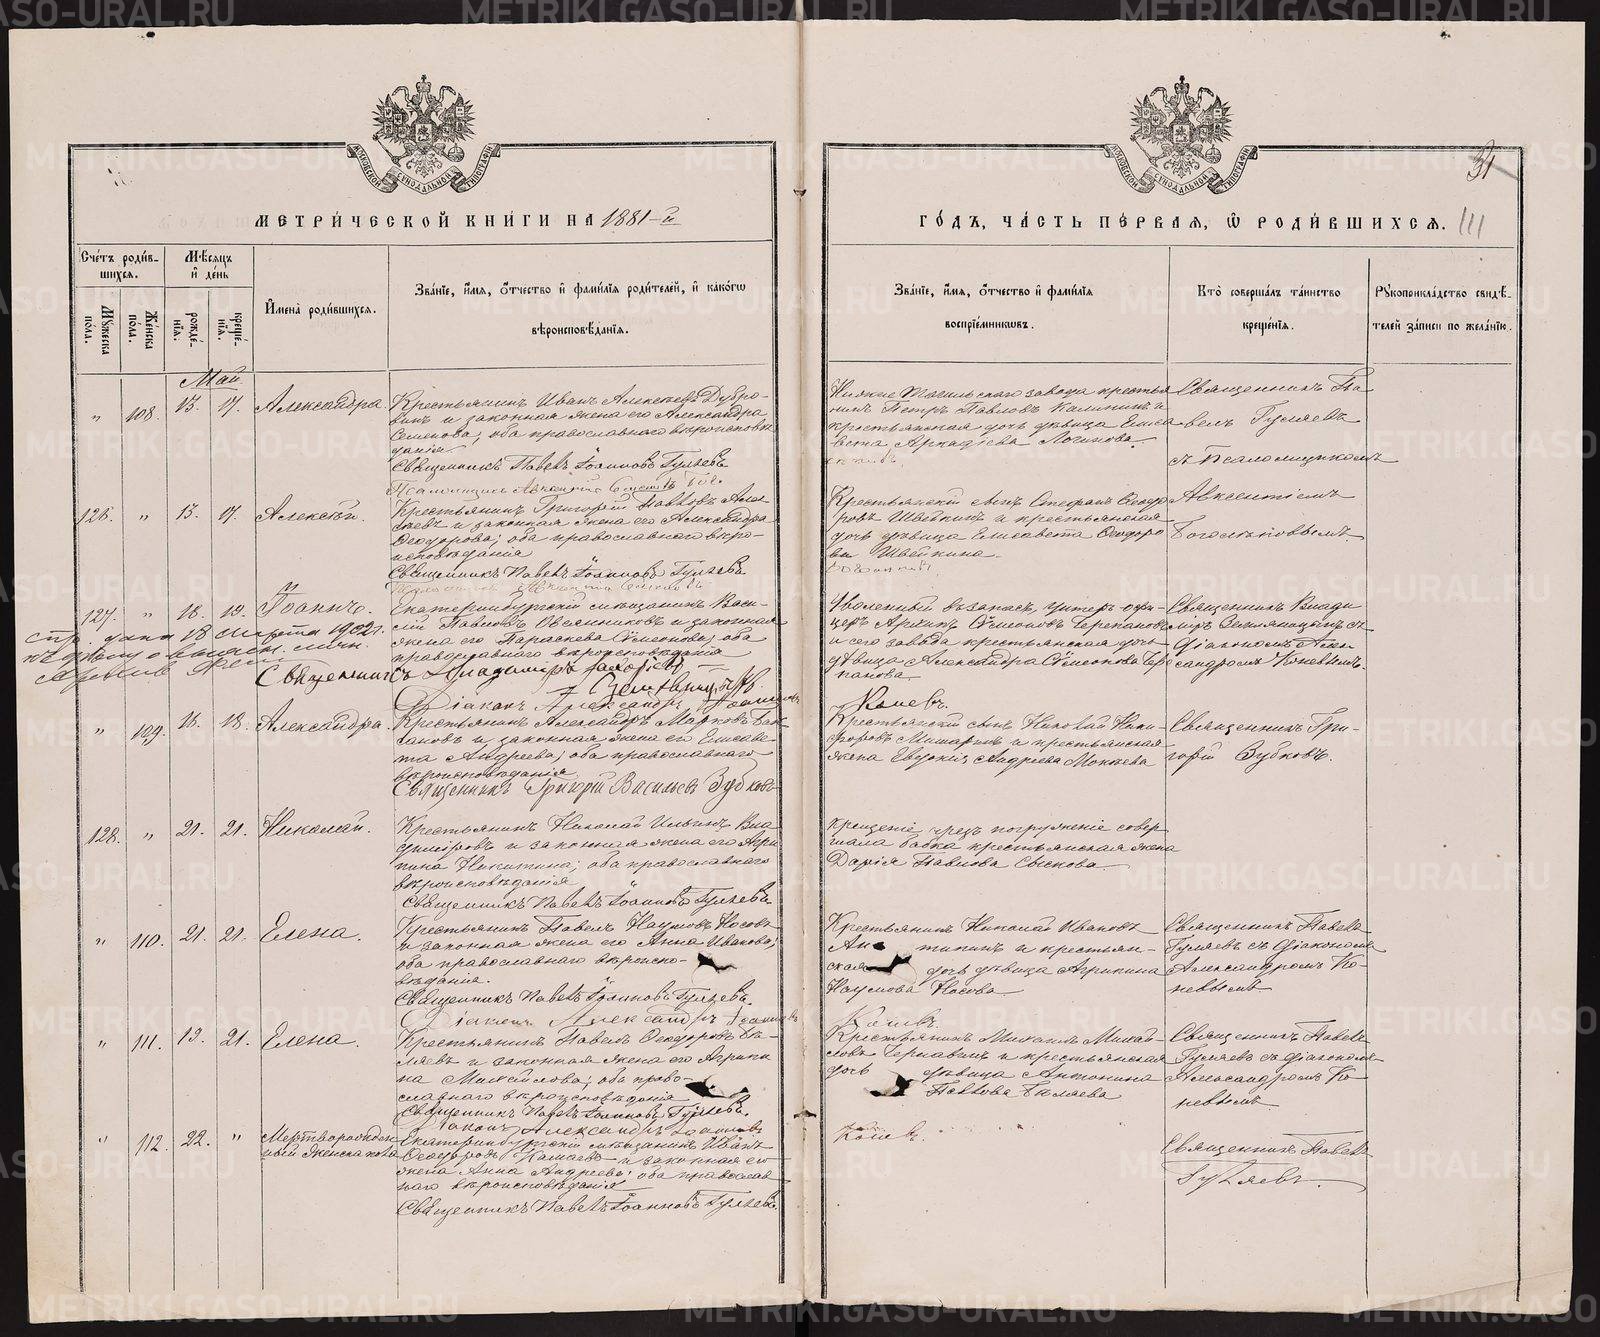 МОСКОВСКОЙ СѴНОДАЛЬНОЙ ТИПОГРАФІИ
МЕТРИ́ЧЕСКОЙ КНИ́ГИ НА 1881-й
Сче́тъ роди́в-
шихся.
Мѣ́сяцъ
и҆ де́нь
Му́жеска
по́ла.
Же́нска
по́ла.
рожде́-
нїѧ.
креще́-
нїѧ.
И҆мена̀ роди́вшихсѧ.
Зва́нїе, и҆́мѧ, ѻ҆́тчество и҆ фами́лїѧ роди́телей, и҆ како́гѡ
вѣроисповѣ́данїѧ.
Май
„ 108. 13. 17. Александра.
Крестьянинъ Иванъ Алексѣевъ Дубро-
винъ и законная жена его Александра
Семенова; оба православнаго вѣроисповѣ
данія
Священникъ Павелъ Іоанновъ Гуляевъ
126. „ 13. 17. Алексѣй.
Крестьянинъ Григорій Павловъ
и законная жена его Александра
Ѳеодорова; оба православнаго вѣро-
исповѣданія
Священникъ Павелъ Іоанновъ Гуляевъ
127. „ 18. 19. Іоаннъ.
Екатеринбургскій мѣщанинъ Васи-
лій Павловъ Овсянниковъ и законная
жена его Параскева Сѵмеонова; оба
православнаго вѣроисповѣданія
18 Марта 1902 г.
Священникъ Владиміръ
Діаконъ Александръ Іоанновъ
„ 109. 16. 18. Александра.
Крестьянинъ Александръ Марковъ
и законная жена его Елисаве-
та Андреева; оба православнаго
вѣроисповѣданія
Священникъ Григорій Васильевъ Зубковъ
128. „ 21. 21. Николай.
Крестьянинъ Николай Ильинъ Вла
диміровъ и законная жена его Агри
пина Никитина; оба православнаго
вѣроисповѣданія
Священникъ Павелъ Іоанновъ Гуляевъ
„ 110. 21. 21. Елена.
Крестьянинъ Павелъ Наумовъ Носовъ
и законная жена его Анна Иванова;
оба православнаго вѣроиспо-
вѣданія.
Священникъ Павелъ Іоанновъ Гуляевъ.
Діаконъ Александръ Іоанновъ
„ 111. 19. 21. Елена.
Крестьянинъ Павелъ Ѳеодоровъ Бѣ-
ляевъ и законная жена его Агрипи
на Михайлова; оба право-
славнаго вѣроисповѣданія
Священникъ Павелъ Іоанновъ Гуляевъ.
Діаконъ Александръ Іоанновъ
„ 112. 22. „ Мертворожден
ный женска пола
Екатеринбургскій мѣщанинъ Иванъ
Ѳеодоровъ и законная его
жена Анна Андреева; оба православ
наго вѣроисповѣданія
Священникъ Павелъ Іоанновъ Гуляевъ.
31
МОСКОВСКОЙ СѴНОДАЛЬНОЙ ТИПОГРАФІИ
ГО́ДЪ, ЧА́СТЬ ПЕ́РВАЯ, Ѽ РОДИ́ВШИХСЯ. 111
Зва́нїе, и҆́мѧ, ѻ҆́тчество и҆ фами́лїѧ
воспрїе́мникѡвъ.
Кто̀ соверша́лъ та́инство
креще́нїѧ.
Рꙋкоприкла́дство свидѣ́-
телей за́писи по жела́нїю.
Нижне Тагильскаго завода крестья
нинъ Петръ Павловъ Калининъ и
крестьянская дочь дѣвица Елиса
вета Аркадіева Логинова.
Священникъ Па
велъ Гуляевъ
съ Псаломщикомъ
Крестьянскій сынъ Стефанъ Ѳеодо
ровъ Швейкинъ и крестьянская
дочь дѣвица Елисавета Ѳеодоро
ва Швейкина.
Авксентіемъ
Боголѣповымъ.
Уволенный въ запасъ унтеръ-офи-
церъ Архипъ Сѵмеоновъ Черепановъ
и сего завода крестьянская дочь
дѣвица Александра Сѵмеонова Чере
панова.
Коневъ.
Священникъ Влади
міръ Земляницынъ съ
діакономъ Алек
сандромъ Коневымъ.
Крестьянскій сынъ Николай Ники-
форовъ Мишаринъ и крестьянская
жена Евдокія Андреева Мокѣева
Священникъ Гри-
горій Зубковъ.
Крещеніе чрезъ погруженіе совер
шала бабка крестьянская жена
Дарія Павлова Сыскова.
Крестьянинъ Николай Ивановъ
типинъ и крестьян-
ская дочь дѣвица Агрипина
Наумова Носова.
Коневъ.
Священникъ Павелъ
Гуляевъ съ діакономъ
Александромъ Ко-
невымъ
Крестьянинъ Михаилъ Михай-
ловъ Чернавинъ и крестьянская
дочь дѣвица Антонина
Павлова Бѣляева
Коневъ.
Священникъ Павелъ
Гуляевъ съ діакономъ
Александромъ Ко
невымъ.
Священникъ Павелъ
Гуляевъ.
METRIKI.GASO-URAL.RU